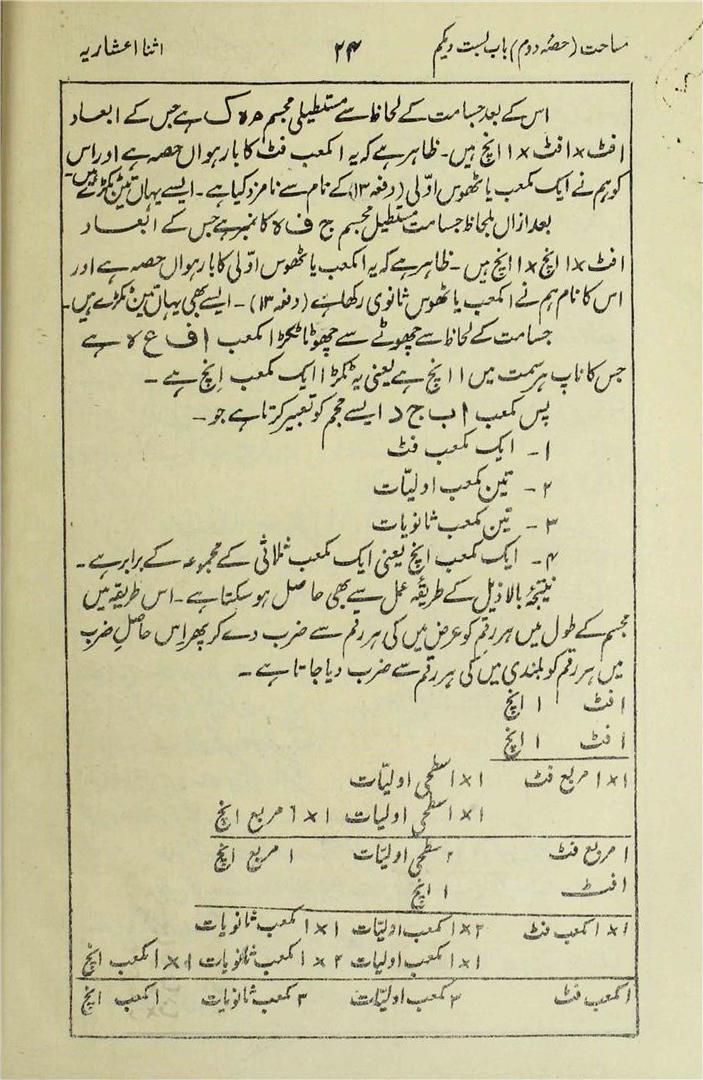 مساحت (حصۂ دوم) باب بست ویکم ۲۴ اثنا اعشاریہ
اس کے بعد جسامت کے لحاظ سے مستطیلی مجسم ہے جس کے ابعاد
۱ فٹ × ۱ فٹ × ۱ انچ ہیں۔ ظاہر ہے کہ یہ ۱ مکعب فٹ کا بارہواں حصہ ہے اور اس
کو ہم نے ایک مکعب یا ٹھوس اوّلی (دفعہ ۱۳) کے نام سے نامزد کیا ہے۔ ایسے یہاں تین ٹکڑے ہیں۔
بعد ازاں بلحاظ جسامت مستطیل مجسم ج ف لا کا نمبر ہے جس کے ابعاد
۱ فٹ × ۱ انچ × ۱ انچ ہیں۔ ظاہر ہے کہ یہ ۱ مکعب یا ٹھوس اوّلی کا بارہواں حصہ ہے اور
اس کا نام ہم نے ۱ مکعب یا ٹھوس ثانوی رکھا ہے (دفعہ ۱۳)۔ ایسے بھی یہاں تین ٹکڑے ہیں۔
جسامت کے لحاظ سے چھوٹے سے چھوٹا ٹکڑا مکعب ا ف ع لا ہے
جس کا ناپ ہر سمت میں ۱ انچ ہے یعنی یہ ٹکڑا ایک مکعب انچ ہے۔
پس مکعب ا ب ج د ایسے حجم کو تعبیر کرتا ہے جو۔
۱۔ ایک مکعب فٹ
۲۔ تین مکعب اولیّات
۳۔ تین مکعب ثانویات
۴۔ ایک مکعب انچ یعنی ایک مکعب ثلاثی کے مجموعہ کے برابر ہے۔
نتیجۂ بالا ذیل کے طریقۂ عمل سے بھی حاصل ہو سکتا ہے۔ اس طریقہ میں
مجسم کے طول میں ہر رقم کو عرض میں کی ہر رقم سے ضرب دے کر پھر اس حاصل ضرب
میں ہر رقم کو بلندی میں کی ہر رقم سے ضرب دیا جاتا ہے۔
۱ فٹ ۱ انچ
۱ فٹ ۱ انچ
۱ × ۱ مربع فٹ ۱ × ۱ سطحی اولیّات
۱ × ۱ سطحی اولیات ۱ × ۱ مربع انچ
۱ مربع فٹ ۲ سطحی اولیّات ۱ مربع انچ
۱ فٹ ۱ انچ
۱ × ۱ مکعب فٹ ۲ × ۱ مکعب اولیّات ۱ × ۱ مکعب ثانویات
۱ × ۱ مکعب اولیات ۲ × ۱ مکعب ثانویات ۱ × ۱ مکعب انچ
۱ مکعب فٹ ۳ مکعب اولیّات ۳ مکعب ثانویات ۱ مکعب انچ